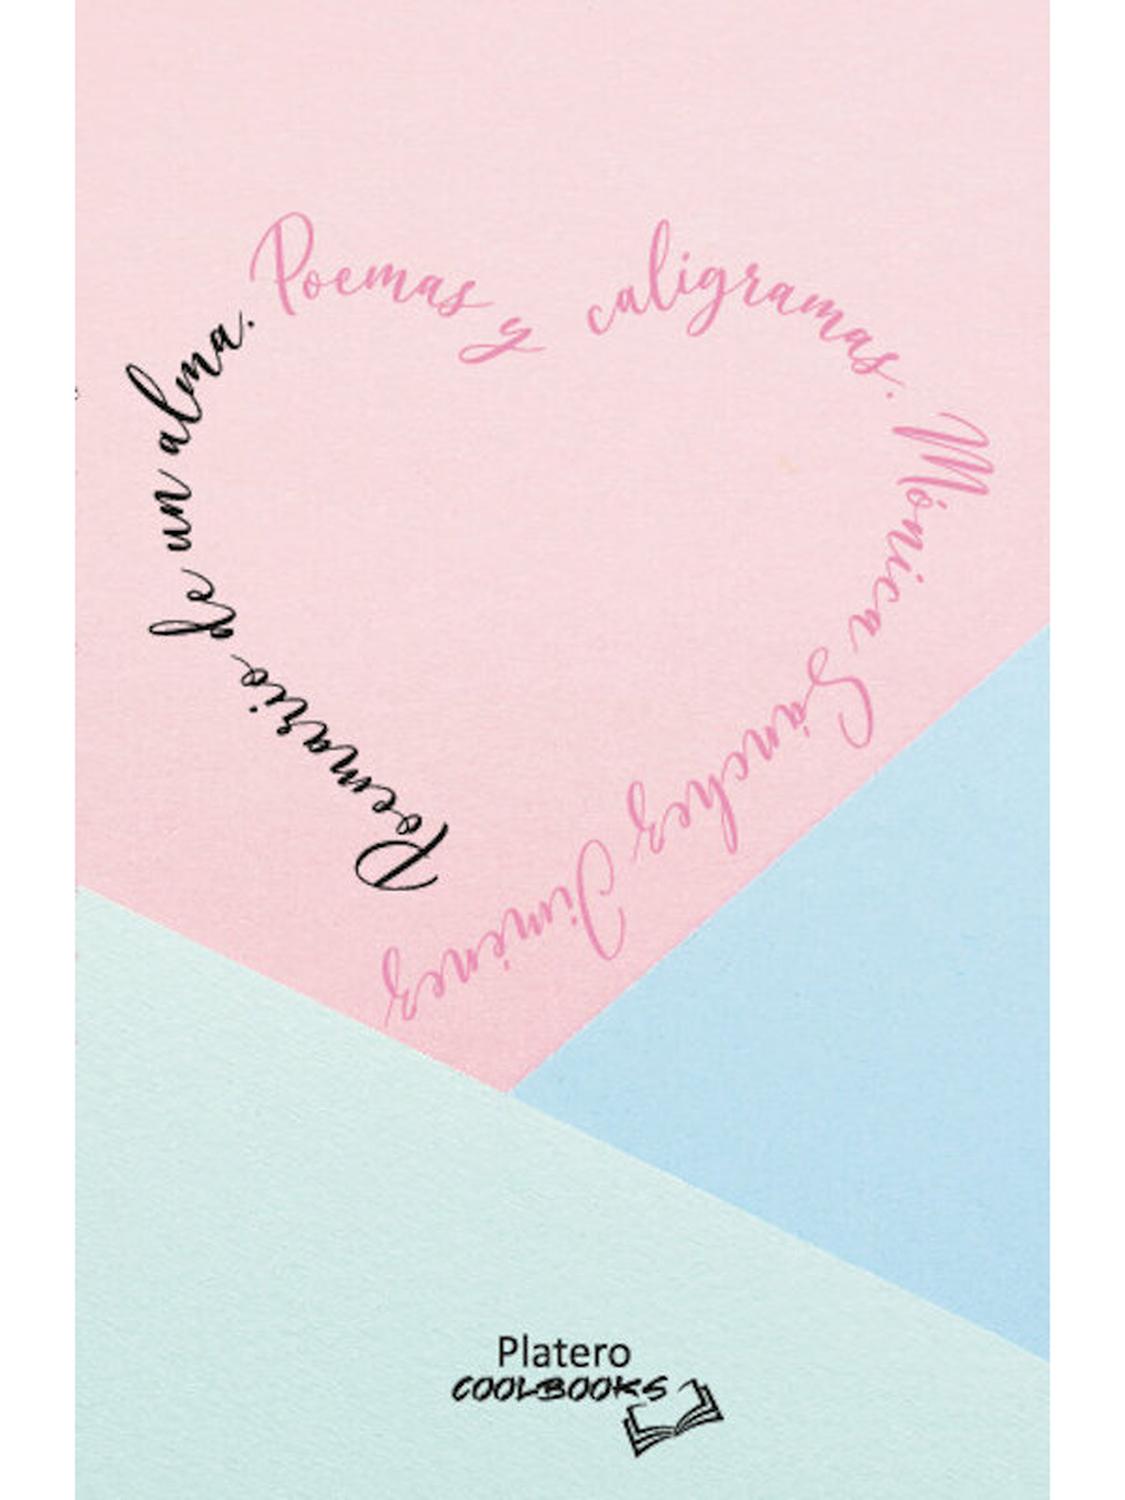 Poemario de un alma. Poemas y caligramas. Mónica Sánchez Jiménez
Platero
COOLBOOKS